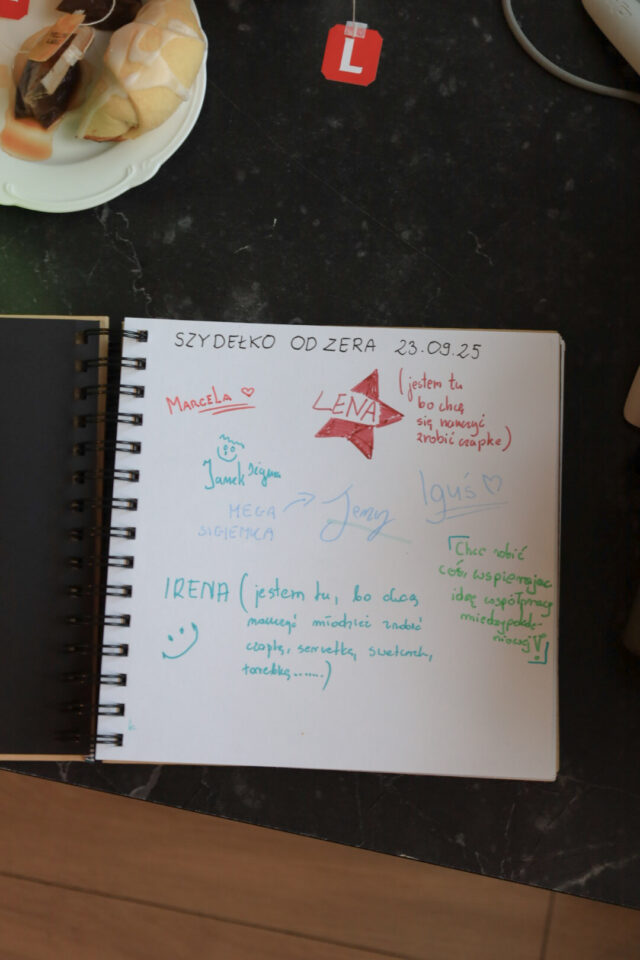 L
SZYDEŁKO OD ZERA 23.09.25
MARCELA
LENA
(jestem tu
bo chcę
się nauczyć
zrobić czapkę)
Janek
Iguś
MEGA
Jerzy
IRENA (jestem tu, bo chcę
nauczyć młodzież zrobić
czapkę, serwetkę, sweterek,
torebkę......)
Chcę robić
coś, wspierając
ideę współpracy
międzypokole-
niowej!